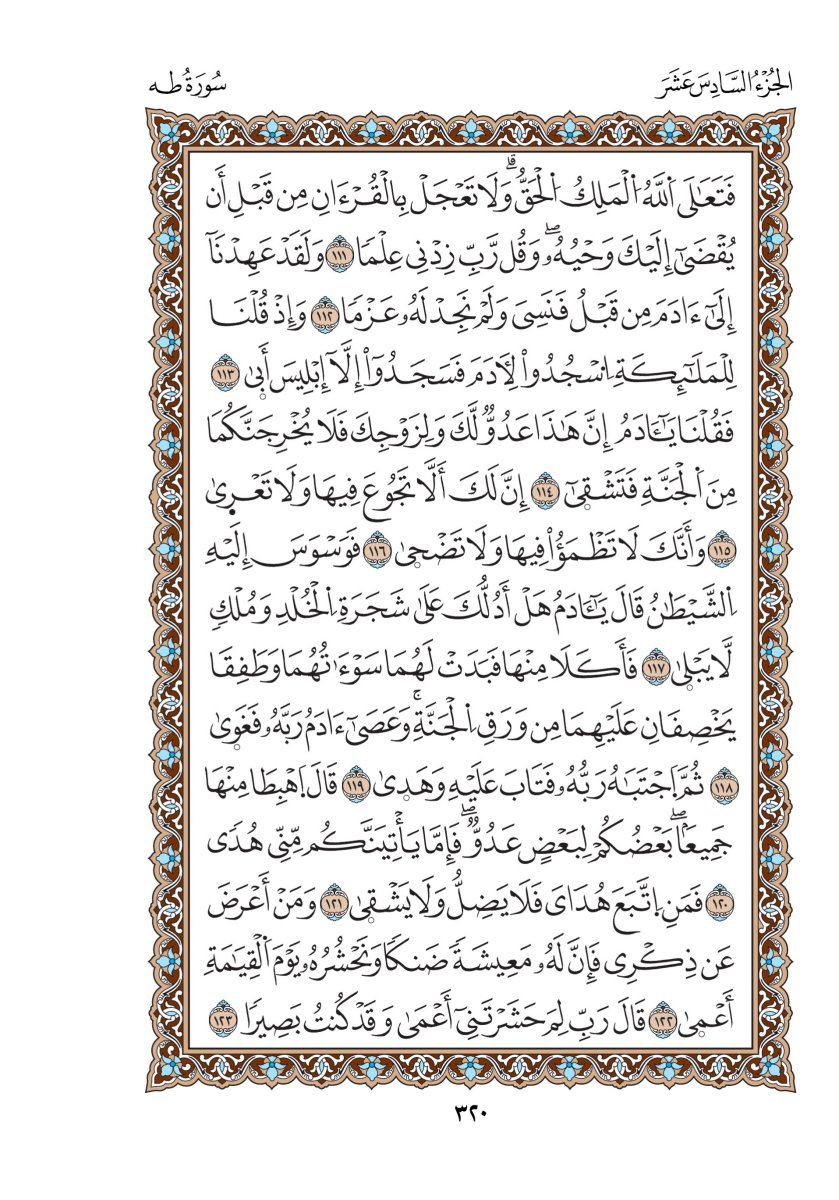 الجُزْءُ السَّادِسَ عَشَرَ
سُورَةُ طه
فَتَعَٰلَى اَ۬للَّهُ اُ۬لْمَلِكُ اُ۬لْحَقُّۗ وَلَا تَعْجَلْ بِالْقُرْءَانِ مِن قَبْلِ أَن
يُقْضَىٰٓ إِلَيْكَ وَحْيُهُۥۖ وَقُل رَّبِّ زِدْنِى عِلْمٗا ١١١ وَلَقَدْ عَهِدْنَآ
إِلَىٰٓ ءَادَمَ مِن قَبْلُ فَنَسِىَ وَلَمْ نَجِدْ لَهُۥ عَزْمٗا ١١٢ وَإِذْ قُلْنَا
لِلْمَلَٰٓئِكَةِ اِ۟سْجُدُواْ لِأٓدَمَ فَسَجَدُوٓاْ إِلَّآ إِبْلِيسَ أَبۭىٰ ١١٣
فَقُلْنَا يَٰٓـَٔادَمُ إِنَّ هَٰذَا عَدُوّٞ لَّكَ وَلِزَوْجِكَ فَلَا يُخْرِجَنَّكُمَا
مِنَ اَ۬لْجَنَّةِ فَتَشْقۭىٰٓ ١١٤ إِنَّ لَكَ أَلَّا تَجُوعَ فِيهَا وَلَا تَعْرۭىٰ
١١٥ وَأَنَّكَ لَا تَظْمَؤُاْ فِيهَا وَلَا تَضْحۭىٰ ١١٦ فَوَسْوَسَ إِلَيْهِ
اِ۬لشَّيْطَٰنُ قَالَ يَٰٓـَٔادَمُ هَلْ أَدُلُّكَ عَلَىٰ شَجَرَةِ اِ۬لْخُلْدِ وَمُلْكٖ
لَّا يَبْلۭىٰ ١١٧ فَأَكَلَا مِنْهَا فَبَدَتْ لَهُمَا سَوْءَٰتُهُمَا وَطَفِقَا
يَخْصِفَانِ عَلَيْهِمَا مِن وَرَقِ اِ۬لْجَنَّةِۚ وَعَصَىٰٓ ءَادَمُ رَبَّهُۥ فَغَوۭىٰ
١١٨ ثُمَّ اَ۪جْتَبَٰهُ رَبُّهُۥ فَتَابَ عَلَيْهِ وَهَدۭىٰ ١١٩ قَالَ اَ۪هْبِطَا مِنْهَا
جَمِيعَۢاۖ بَعْضُكُمْ لِبَعْضٍ عَدُوّٞۖ فَإِمَّا يَأْتِيَنَّكُم مِّنِّى هُدٗى
١٢٠ فَمَنِ اِ۪تَّبَعَ هُدَاىَ فَلَا يَضِلُّ وَلَا يَشْقۭىٰ ١٢١ وَمَنْ أَعْرَضَ
عَن ذِكْرِى فَإِنَّ لَهُۥ مَعِيشَةٗ ضَنكٗا وَنَحْشُرُهُۥ يَوْمَ اَ۬لْقِيَٰمَةِ
أَعْمۭىٰ ١٢٢ قَالَ رَبِّ لِمَ حَشَرْتَنِىٓ أَعْمَىٰ وَقَدْ كُنتُ بَصِيرٗا ١٢٣
٣٢٠